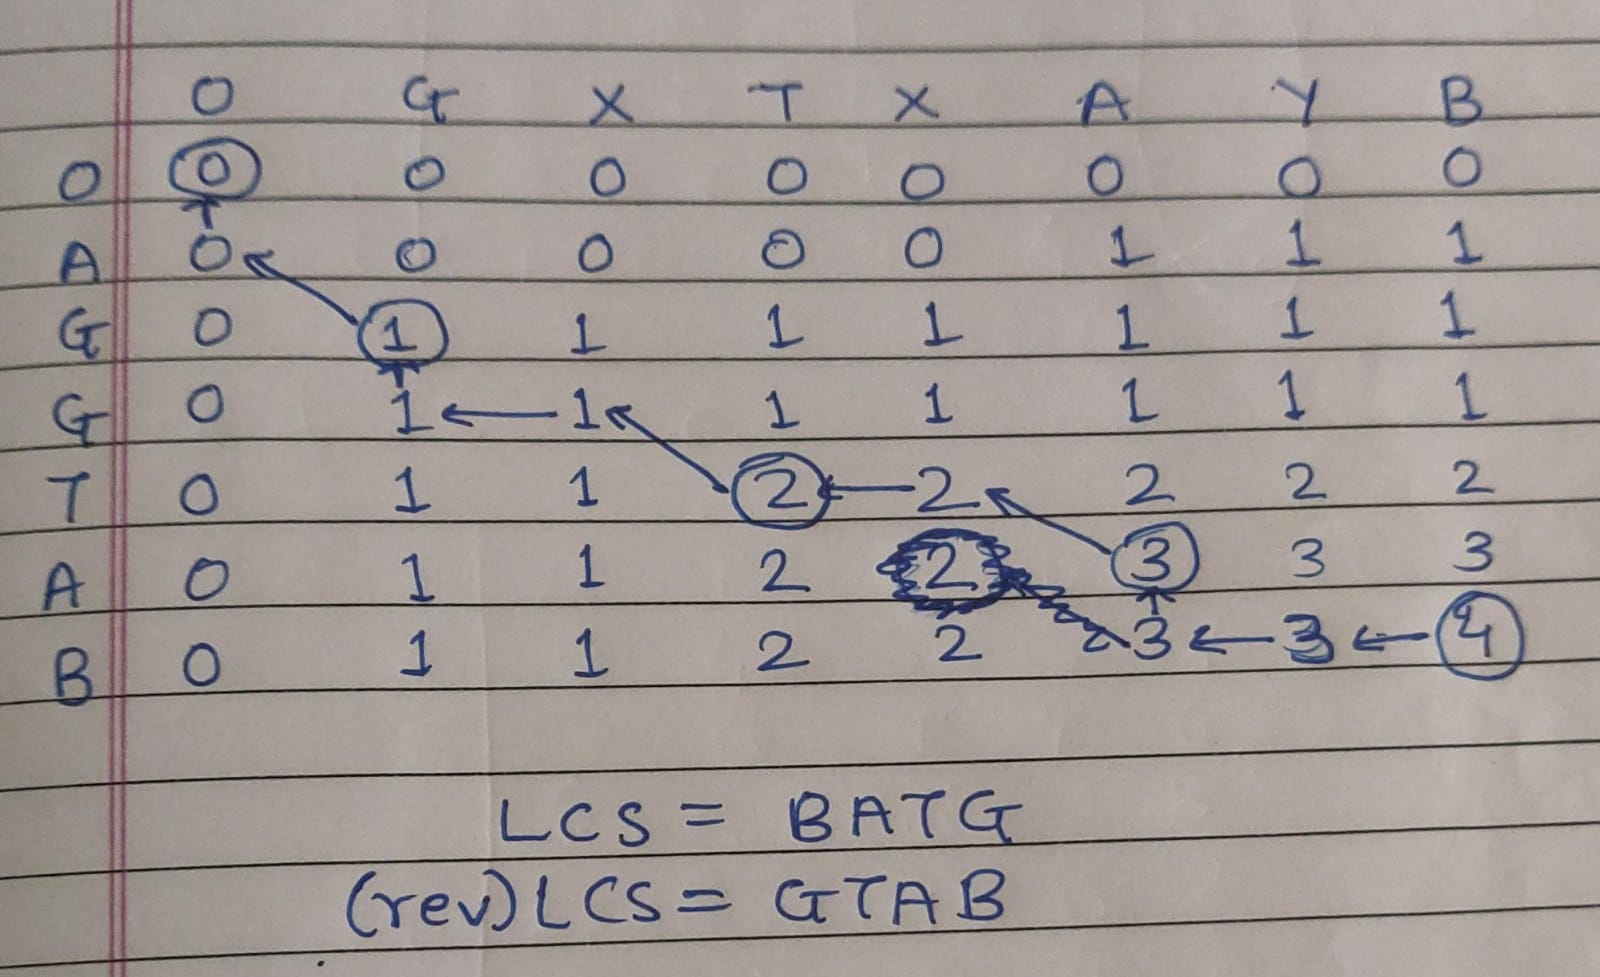 O G X T X A Y B
O 0 0 0 0 0 0 0 0
A 0 0 0 0 0 1 1 1
G 0 1 1 1 1 1 1 1
G 0 1 1 1 1 1 1 1
T 0 1 1 2 2 2 2 2
A 0 1 1 2 2 3 3 3
B 0 1 1 2 2 3 3 4
LCS = BATG
(rev) LCS = GTAB